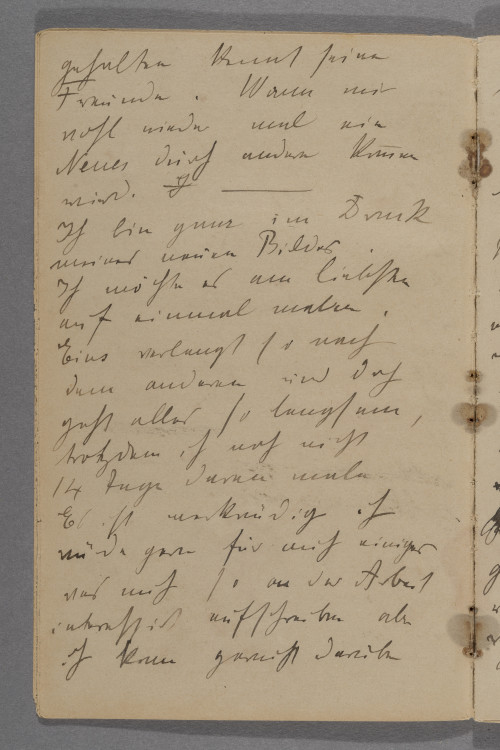 gehalten kennt seine
Freunde. Wann mir
wohl wieder mal ein
Neues durch andere kommen
wird.
Ich bin ganz im Druck
meines neuen Bildes.
Ich möchte es am liebsten
auf einmal malen.
Eins verlangt so nach
dem anderen und doch
geht alles so langsam,
trotzdem ich noch nicht
14 Tage daran male.
Es ist merkwürdig ich
würde gern für mich einiges
was mich so an der Arbeit
interessirt aufschreiben aber
ich kann garnicht darüber